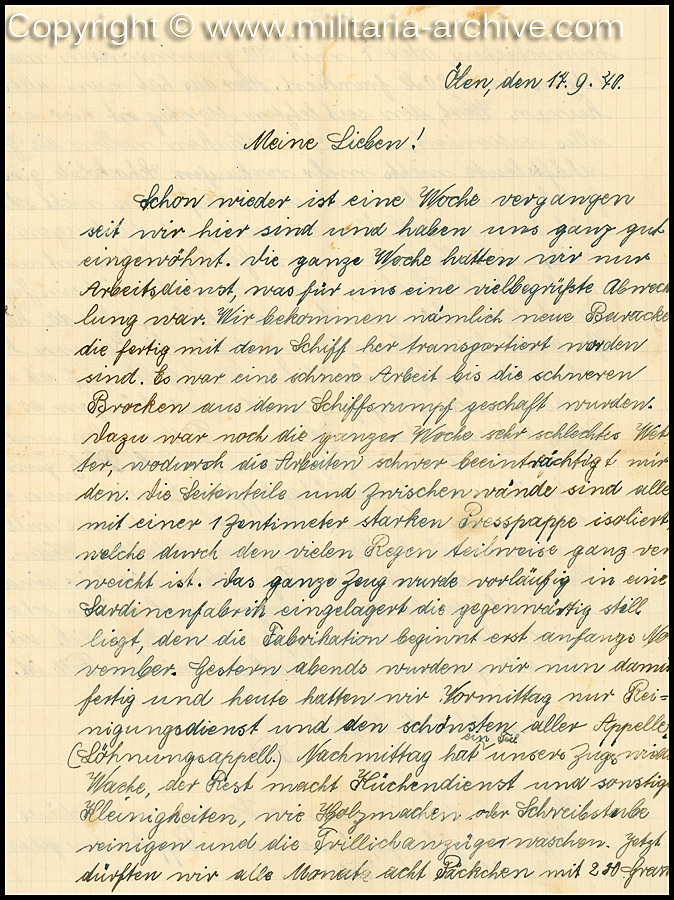 Copyright © www.militaria-archive.com
Ölen, den 17.9.40.
Meine Lieben!
Schon wieder ist eine Woche vergangen
seit wir hier sind und haben uns ganz gut
eingewöhnt. Die ganze Woche hatten wir nur
Arbeitsdienst, was für uns eine vielbegrüßte Abwech
lung war. Wir bekommen nämlich neue Baracke
die fertig mit dem Schiff her transportiert worden
sind. Es war eine schwere Arbeit bis die schweren
Brocken aus dem Schiffsrumpf geschaft wurden.
Dazu war noch die ganzes Woche sehr schlechtes Wet
ter, wodurch die Arbeiten schwer beeinträchtigt wur
den. Die Seitenteile und Zwischenwände sind alle
mit einer 1 Zentimeter starken Presspappe isoliert,
welche durch den vielen Regen teilweise ganz ver
weicht ist. Das ganze Zeug wurde vorläufig in eine
Sardinenfabrik eingelagert die gegenwärtig still
liegt, den die Fabrikation beginnt erst anfangs No
vember. Gestern abends wurden wir nun damit
fertig und heute hatten wir Vormittag nur Rei=
nigungsdienst und den schönsten aller Appelle
(Löhnungsappell.) Nachmittag hat ein Teil unsers Zugs wieder
Wache, der Rest macht Küchendienst und sonstige
Kleinigkeiten, wie Holzmachen oder Schreibstube
reinigen und die Trillichanzüge waschen. Jetzt
dürften wir alle Monate acht Päckchen mit 250 Gram